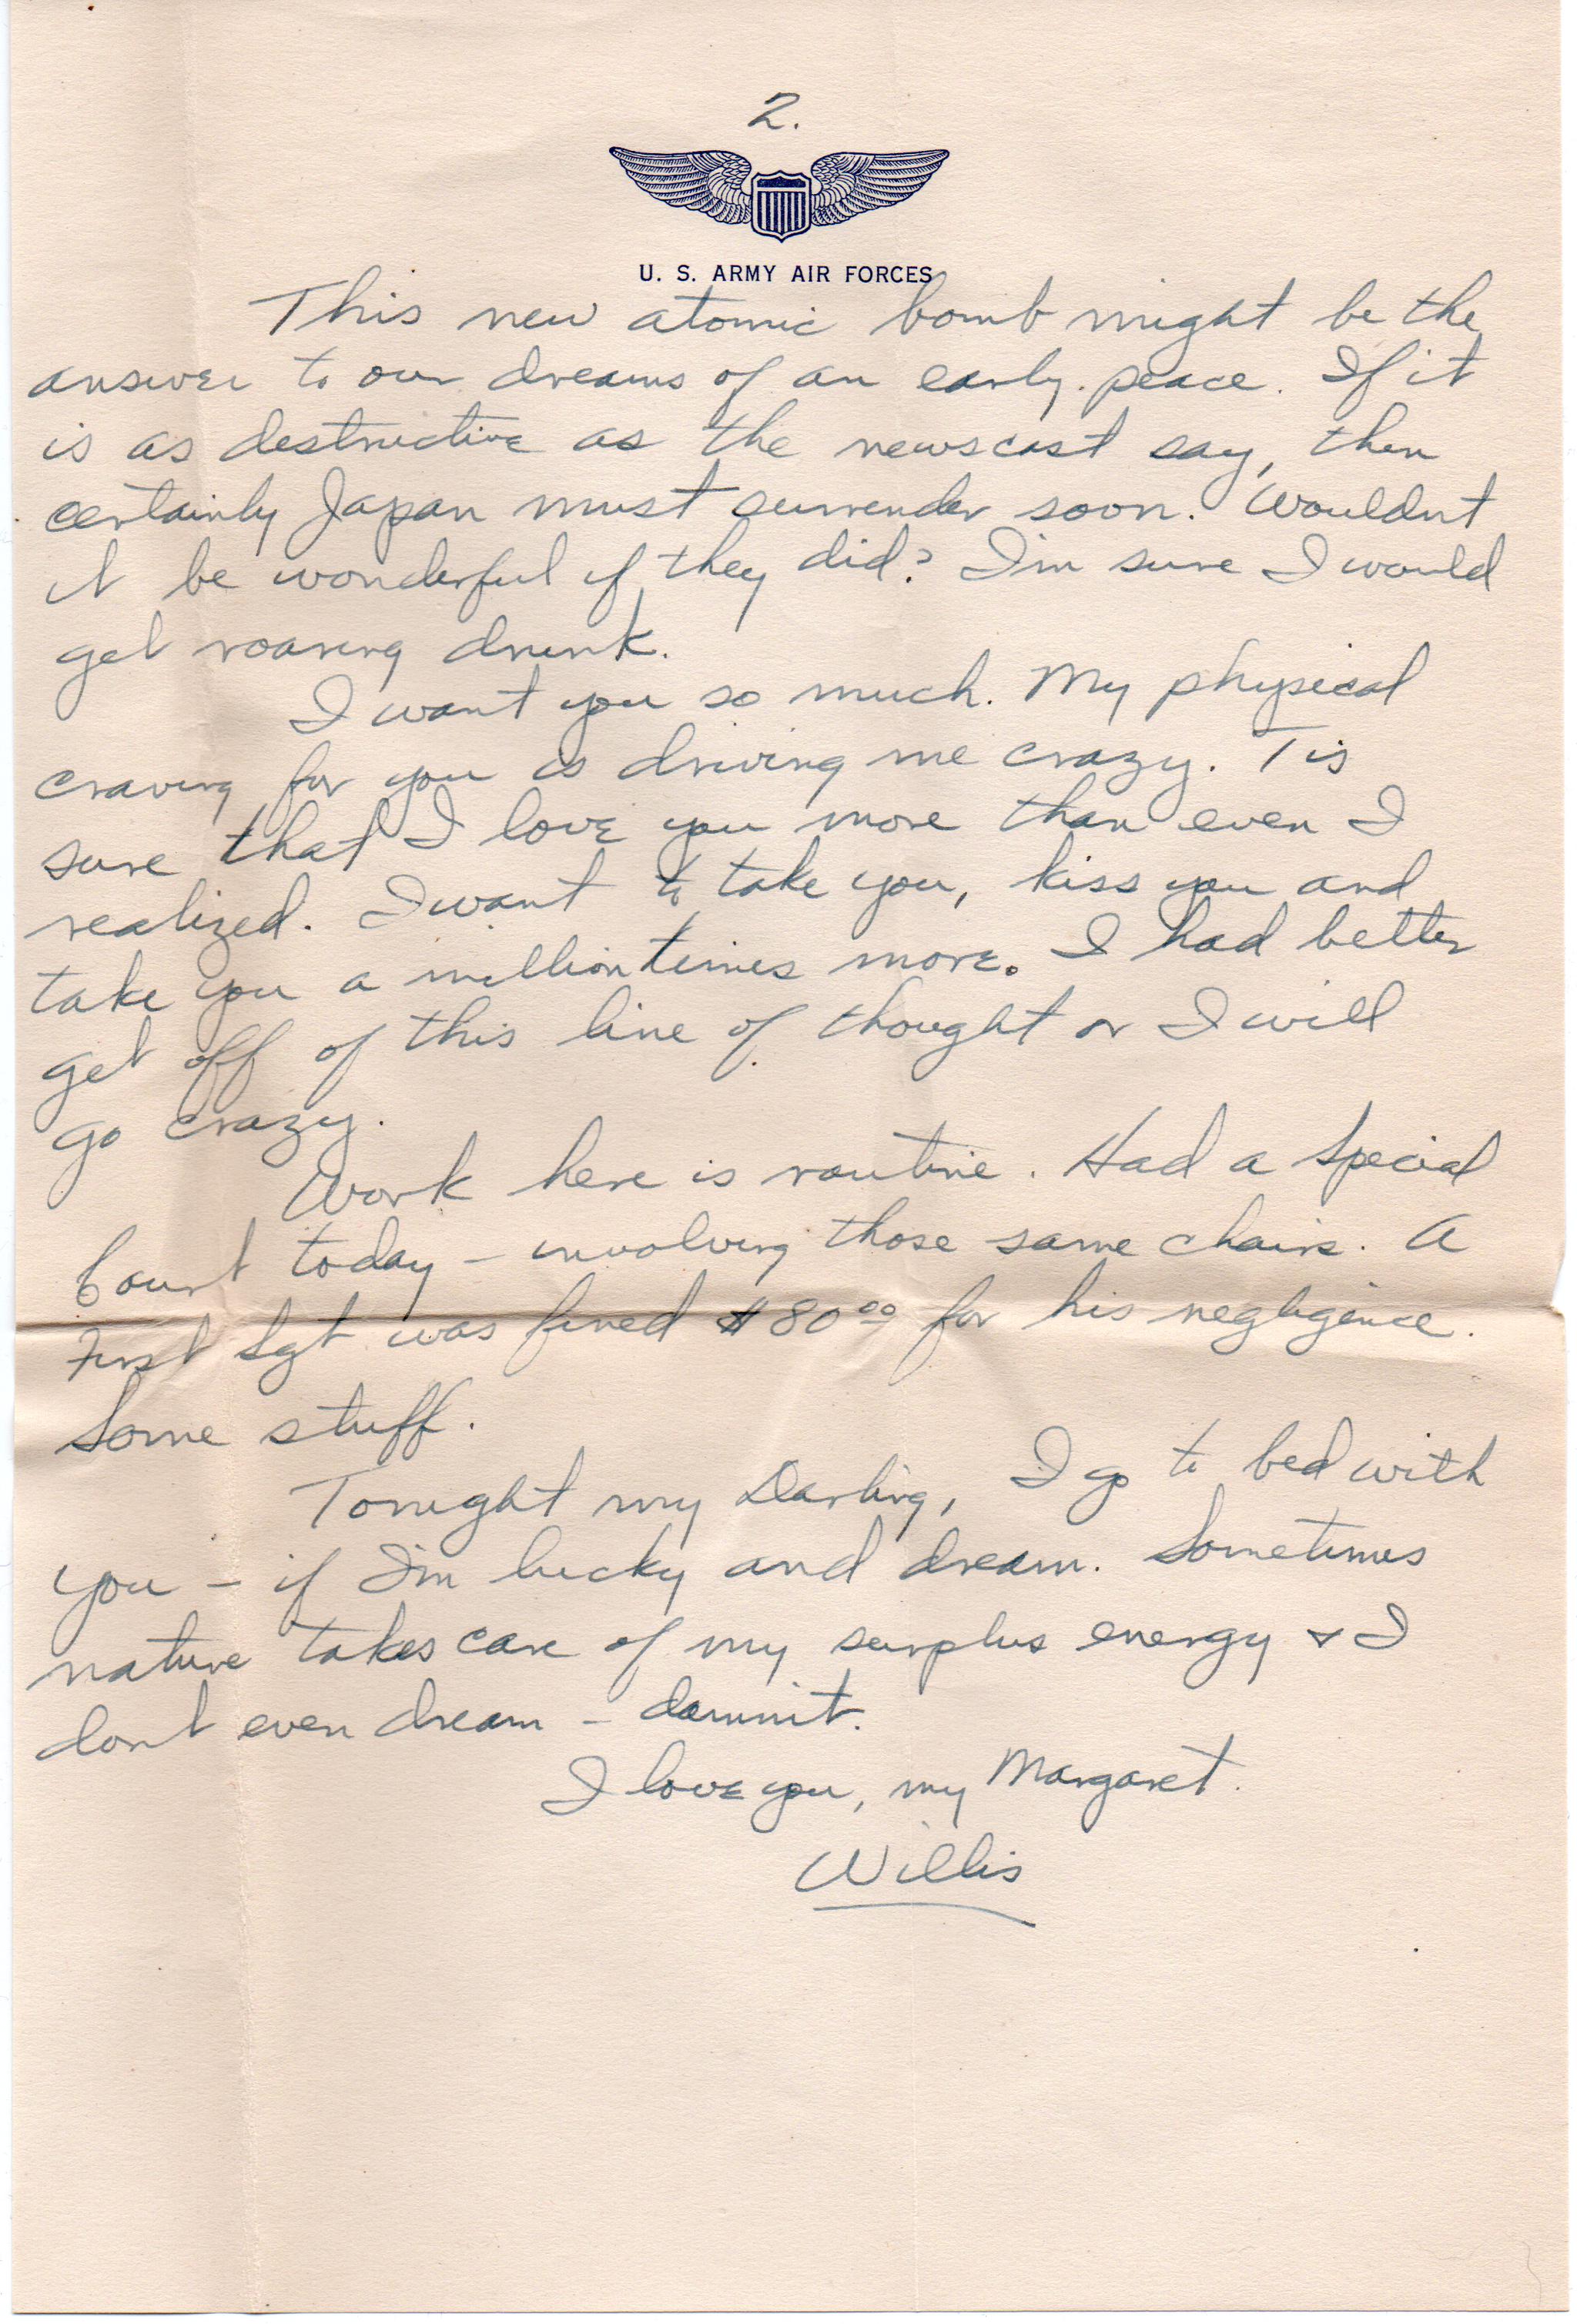 2.
U. S. ARMY AIR FORCES
This new atomic bomb might be the
answer to our dreams of an early peace. If it
is as destructive as the newscast say, then
certainly Japan must surrender soon. Wouldnt
it be wonderful if they did? I'm sure I would
get roaring drunk.
I want you so much. My physical
craving for you is driving me crazy. Tis
sure that I love you more than even I
realized. I want to take you, kiss you and
take you a million times more. I had better
get off of this line of thought or I will
go crazy.
Work here is routine. Had a Special
Court today - involving those same chairs. A
First Sgt was fined $80.00 for his negligence.
Some stuff.
Tonight my Darling, I go to bed with
you - if I'm lucky and dream. Sometimes
nature takes care of my surplus energy & I
dont even dream - damnit.
I love you, my Margaret.
Willis